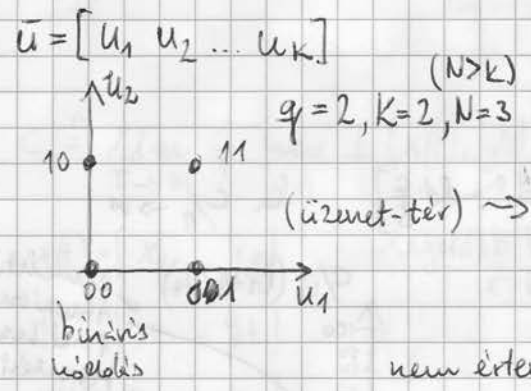 ū = [ u₁ u₂ ... u_K ]
u₂
(N>K)
q = 2, K=2, N=3
10
11
(üzenet-tér) →
00
01
u₁
bináris
kódolás
nem értel